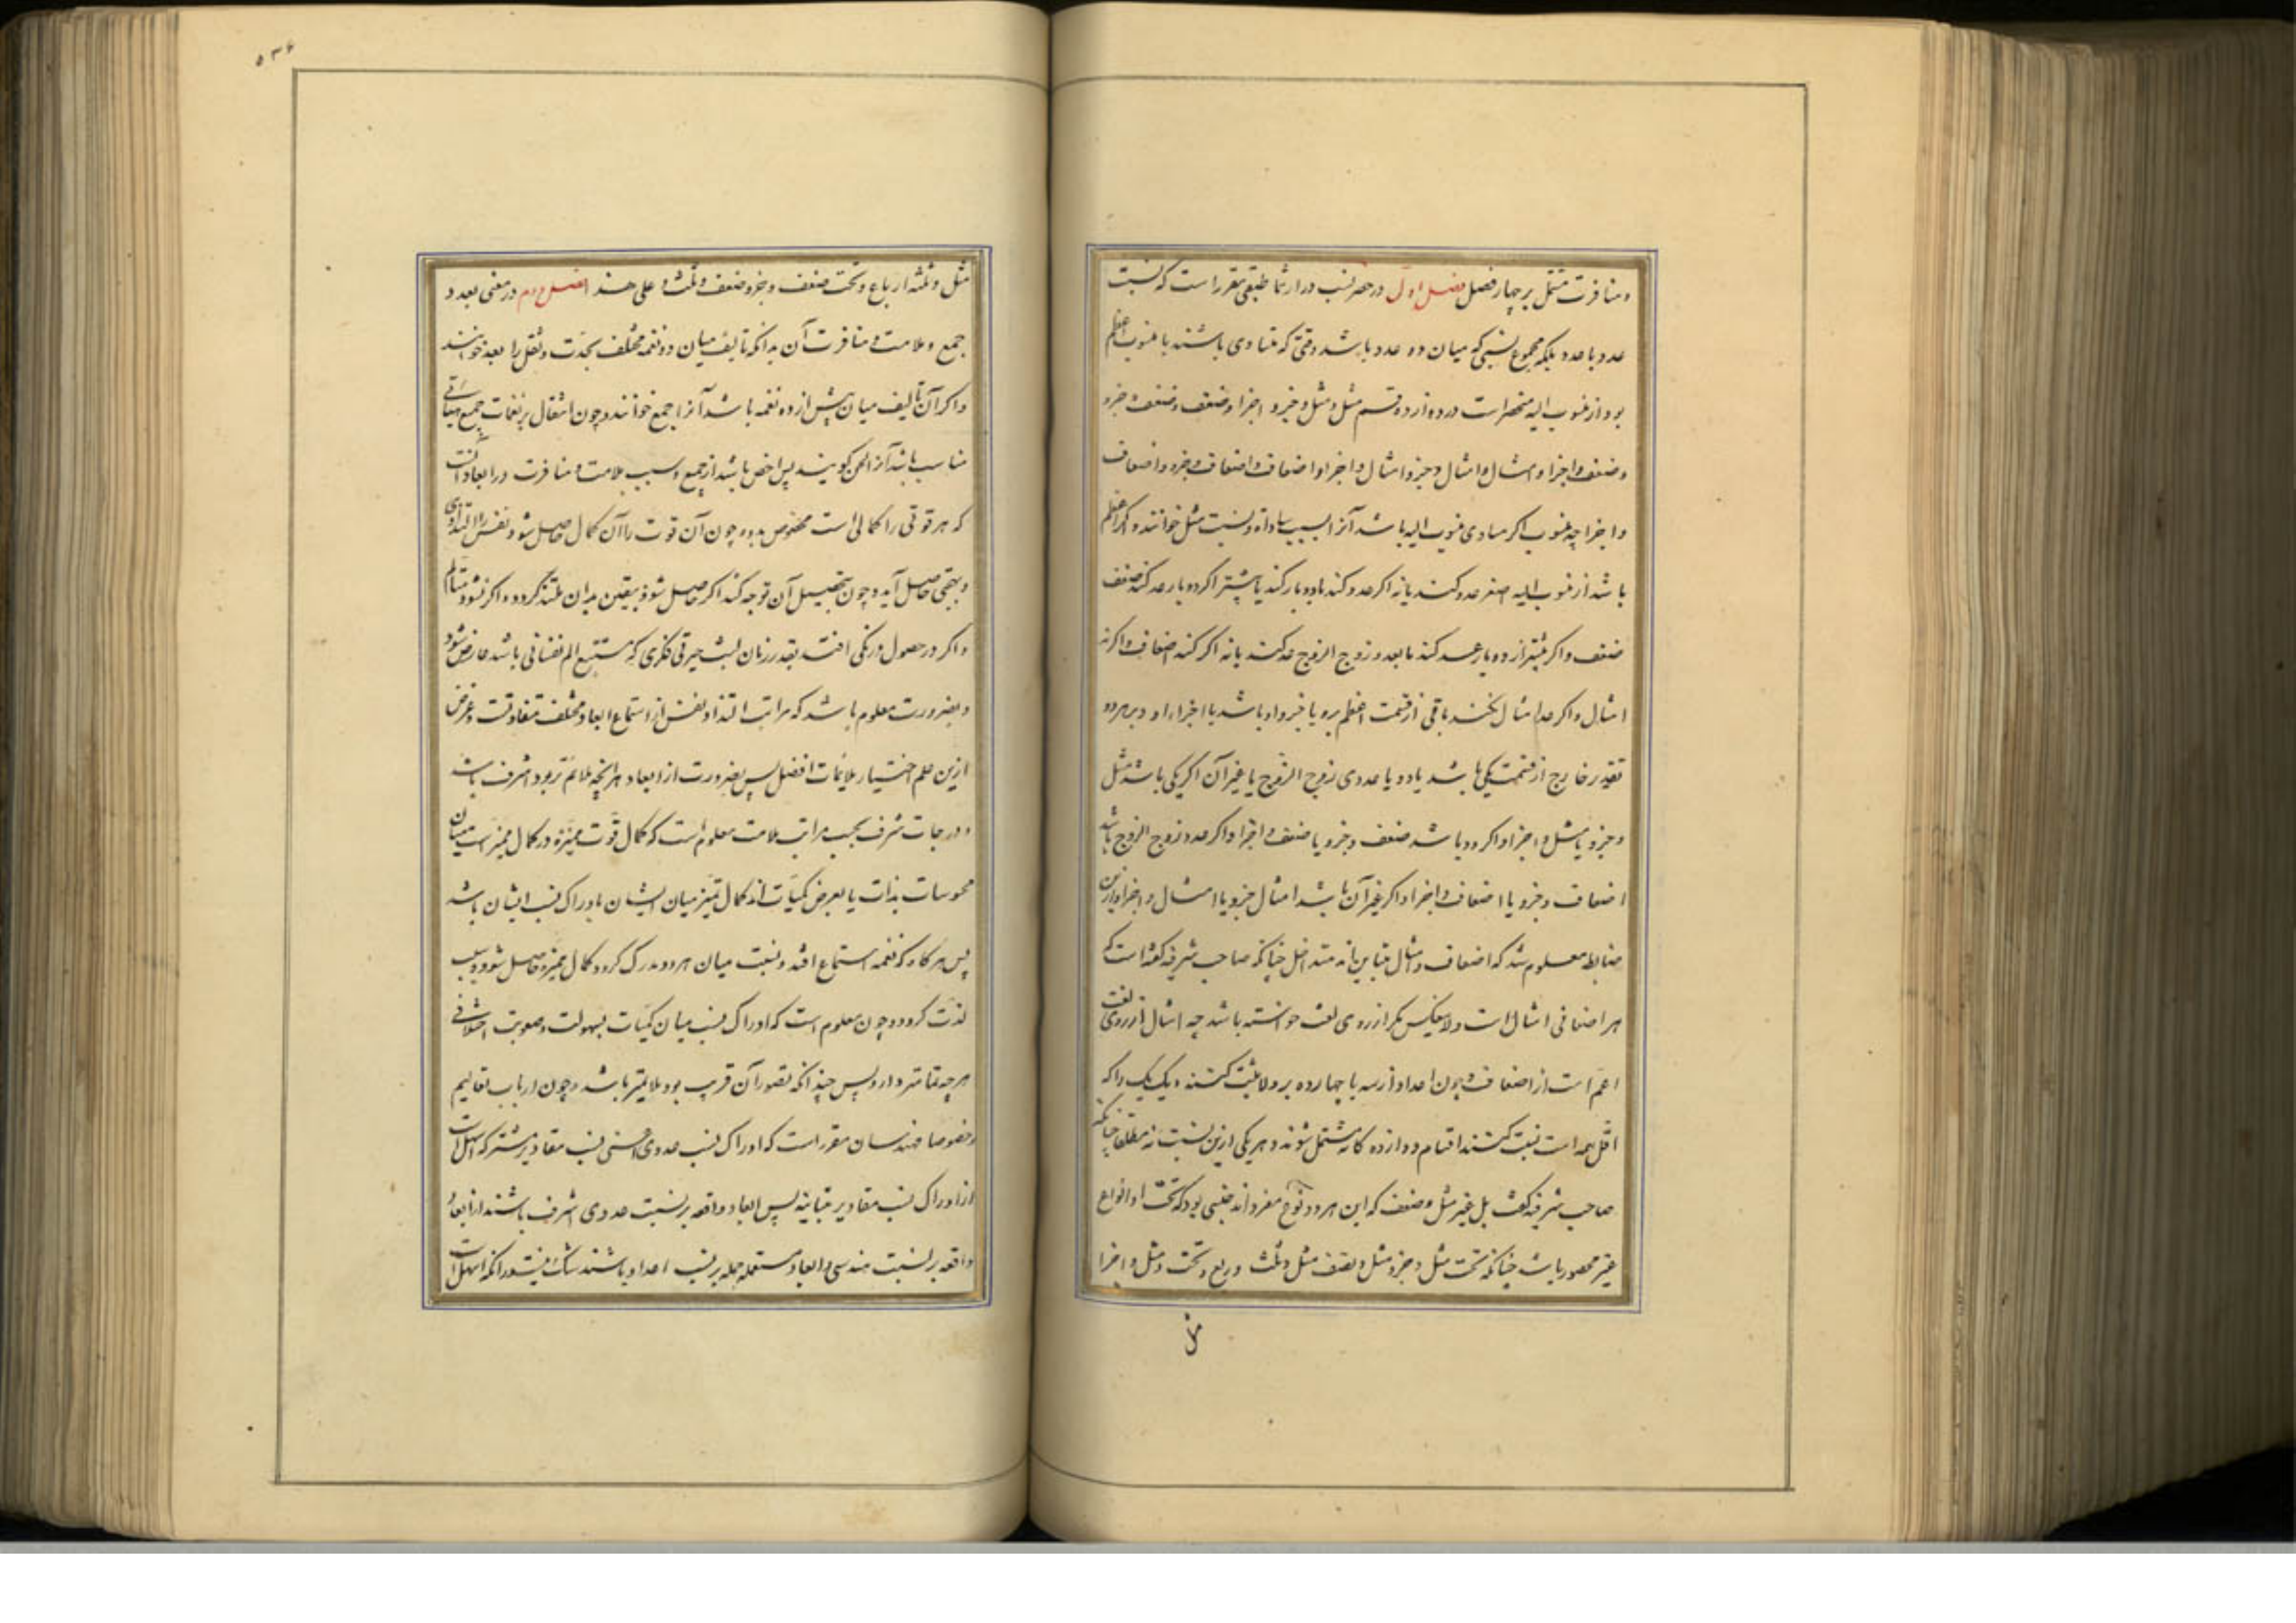 و منافرت مشتمل بر چهار فصل فصل اول در حصر نسب در ارثماطیقی مقرر است که نسبت
عدد با عدد بلکه مجموع نسبی که میان دو عدد باشد وقتی که متساوی باشند یا منسوب اعظم
بود از منسوب الیه منحصر است در دوازده قسم مثل و مثل و جزو و اجزا و ضعف و ضعف و جزو
و ضعف و اجزا و امثال و امثال و جزو و امثال و اجزا و اضعاف و اضعاف و جزو و اضعاف
و اجزا چه منسوب اگر مساوی منسوب الیه باشد آنرا بسبب مساواة و نسبت مثل خوانند و اگر اعظم
باشد از منسوب الیه اصغر عد کند یا نه اگر عد کند یا دو بار کند یا بیشتر اگر دو بار عد کند ضعف
ضعف و اگر بیشتر از دو بار عد کند یا بعدد زوج الزوج عد کند یا نه اگر کند اضعاف و اگر نه
امثال و اگر عد امثال نکند باقی از قسمت اعظم برو یا جزو او باشد یا اجزاء او و بر هر دو
تقدیر خارج از قسمت یکی باشد یا دو یا عددی زوج الزوج یا غیر آن اگر یکی باشد مثل
و جزو یا مثل و اجزا و اگر دو باشد ضعف و جزو یا ضعف و اجزا و اگر عدد زوج الزوج باشد
اضعاف و جزو یا اضعاف و اجزا و اگر غیر آن باشد امثال و جزو یا امثال و اجزا و ازین
ضابط معلوم شد که اضعاف و امثال متباین‌اند نه متداخل چنانکه صاحب شرفیه گفته است که
هر اضعافی امثال است ولاینعکس مگر از روی لغت خواسته باشد چه امثال از روی لغت
اعم است از اضعاف و چون اعداد از سه تا چهارده بر ولا مثبت کنند و یک یک را که
اقل همه است نسبت کنند اقسام دوازده گانه مشتمل شوند و هر یکی ازین نسبت نه مطلقا چنانکه
صاحب شرفیه گفت بل غیر مثل و ضعف که این هر دو نوع مفرداند جنسی بود که تحت او انواع
غیر محصور باشد چنانکه تحت مثل و جزو مثل و نصف مثل و ثلث و ربع و تحت مثل و اجزا
مثل
۵۳۶
مثل و ثلثه ارباع و تحت ضعف و جزو ضعف و ثلث و علی هذا فصل دوم در معنی بعد و
جمع و ملامت و منافرت آن بدانکه تالیف میان دو نغمه مختلف بحدت و ثقل را بعد خوانند
و اگر آن تالیف میان بیش از دو نغمه باشد آنرا جمع خوانند و چون انتقال بر نغمات جمع بهیأتی
مناسب باشد آنرا لحن گویند پس اخص باشد از جمع و سبب ملامت و منافرت در ابعاد آنست
که هر قوتی را کمالی است مخصوص بدو و چون آن قوت را آن کمال حاصل شود نفس را التذاذی
و بهجتی حاصل آید و چون بتحصیل آن توجه کند اگر حاصل شود بیقین بدان ملتذ گردد و اگر نشود متألم
و اگر در حصول درنگی افتد بقدر زمان لبث حیرتی فکری که مستتبع الم نفسانی باشد عارض شود
و بضرورت معلوم باشد که مراتب التذاذ نفس از استماع ابعاد مختلف متفاوتست و غرض
ازین علم اختیار ملائمات افضل پس بضرورت از ابعاد هر آنچه ملائم تر بود اشرف باشد
و درجات شرف بحسب مراتب ملامت معلوم است که کمال قوت ممیزه در کمال تمییز است میان
محسوسات بذات یا بعرض کمیات اند کمال تمییز میان ایشان بادراک نسب ایشان باشد
پس هر گاه که نغمه استماع افتد و نسبت میان هر دو مدرک گردد کمال ممیزه حاصل شود و سبب
لذت گردد و چون معلوم است که ادراک نسب میان کمیات بسهولت و صعوبت اختلافی
هر چه تمامتر دارد پس چندانکه تصور آن قریب بود ملایمتر باشد و چون ارباب تعالیم
خصوصا مهندسان مقرر است که ادراک نسب عددی اعنی نسب مقادیر مشترکه اسهل است
از ادراک نسب مقادیر متباینه پس ابعاد واقعه بر نسبت عددی اشرف باشند از ابعاد
واقعه بر نسبت هندسی و ابعاد مستعمله جمله بر نسب اعداد باشند شک نیست در آنکه اسهل است